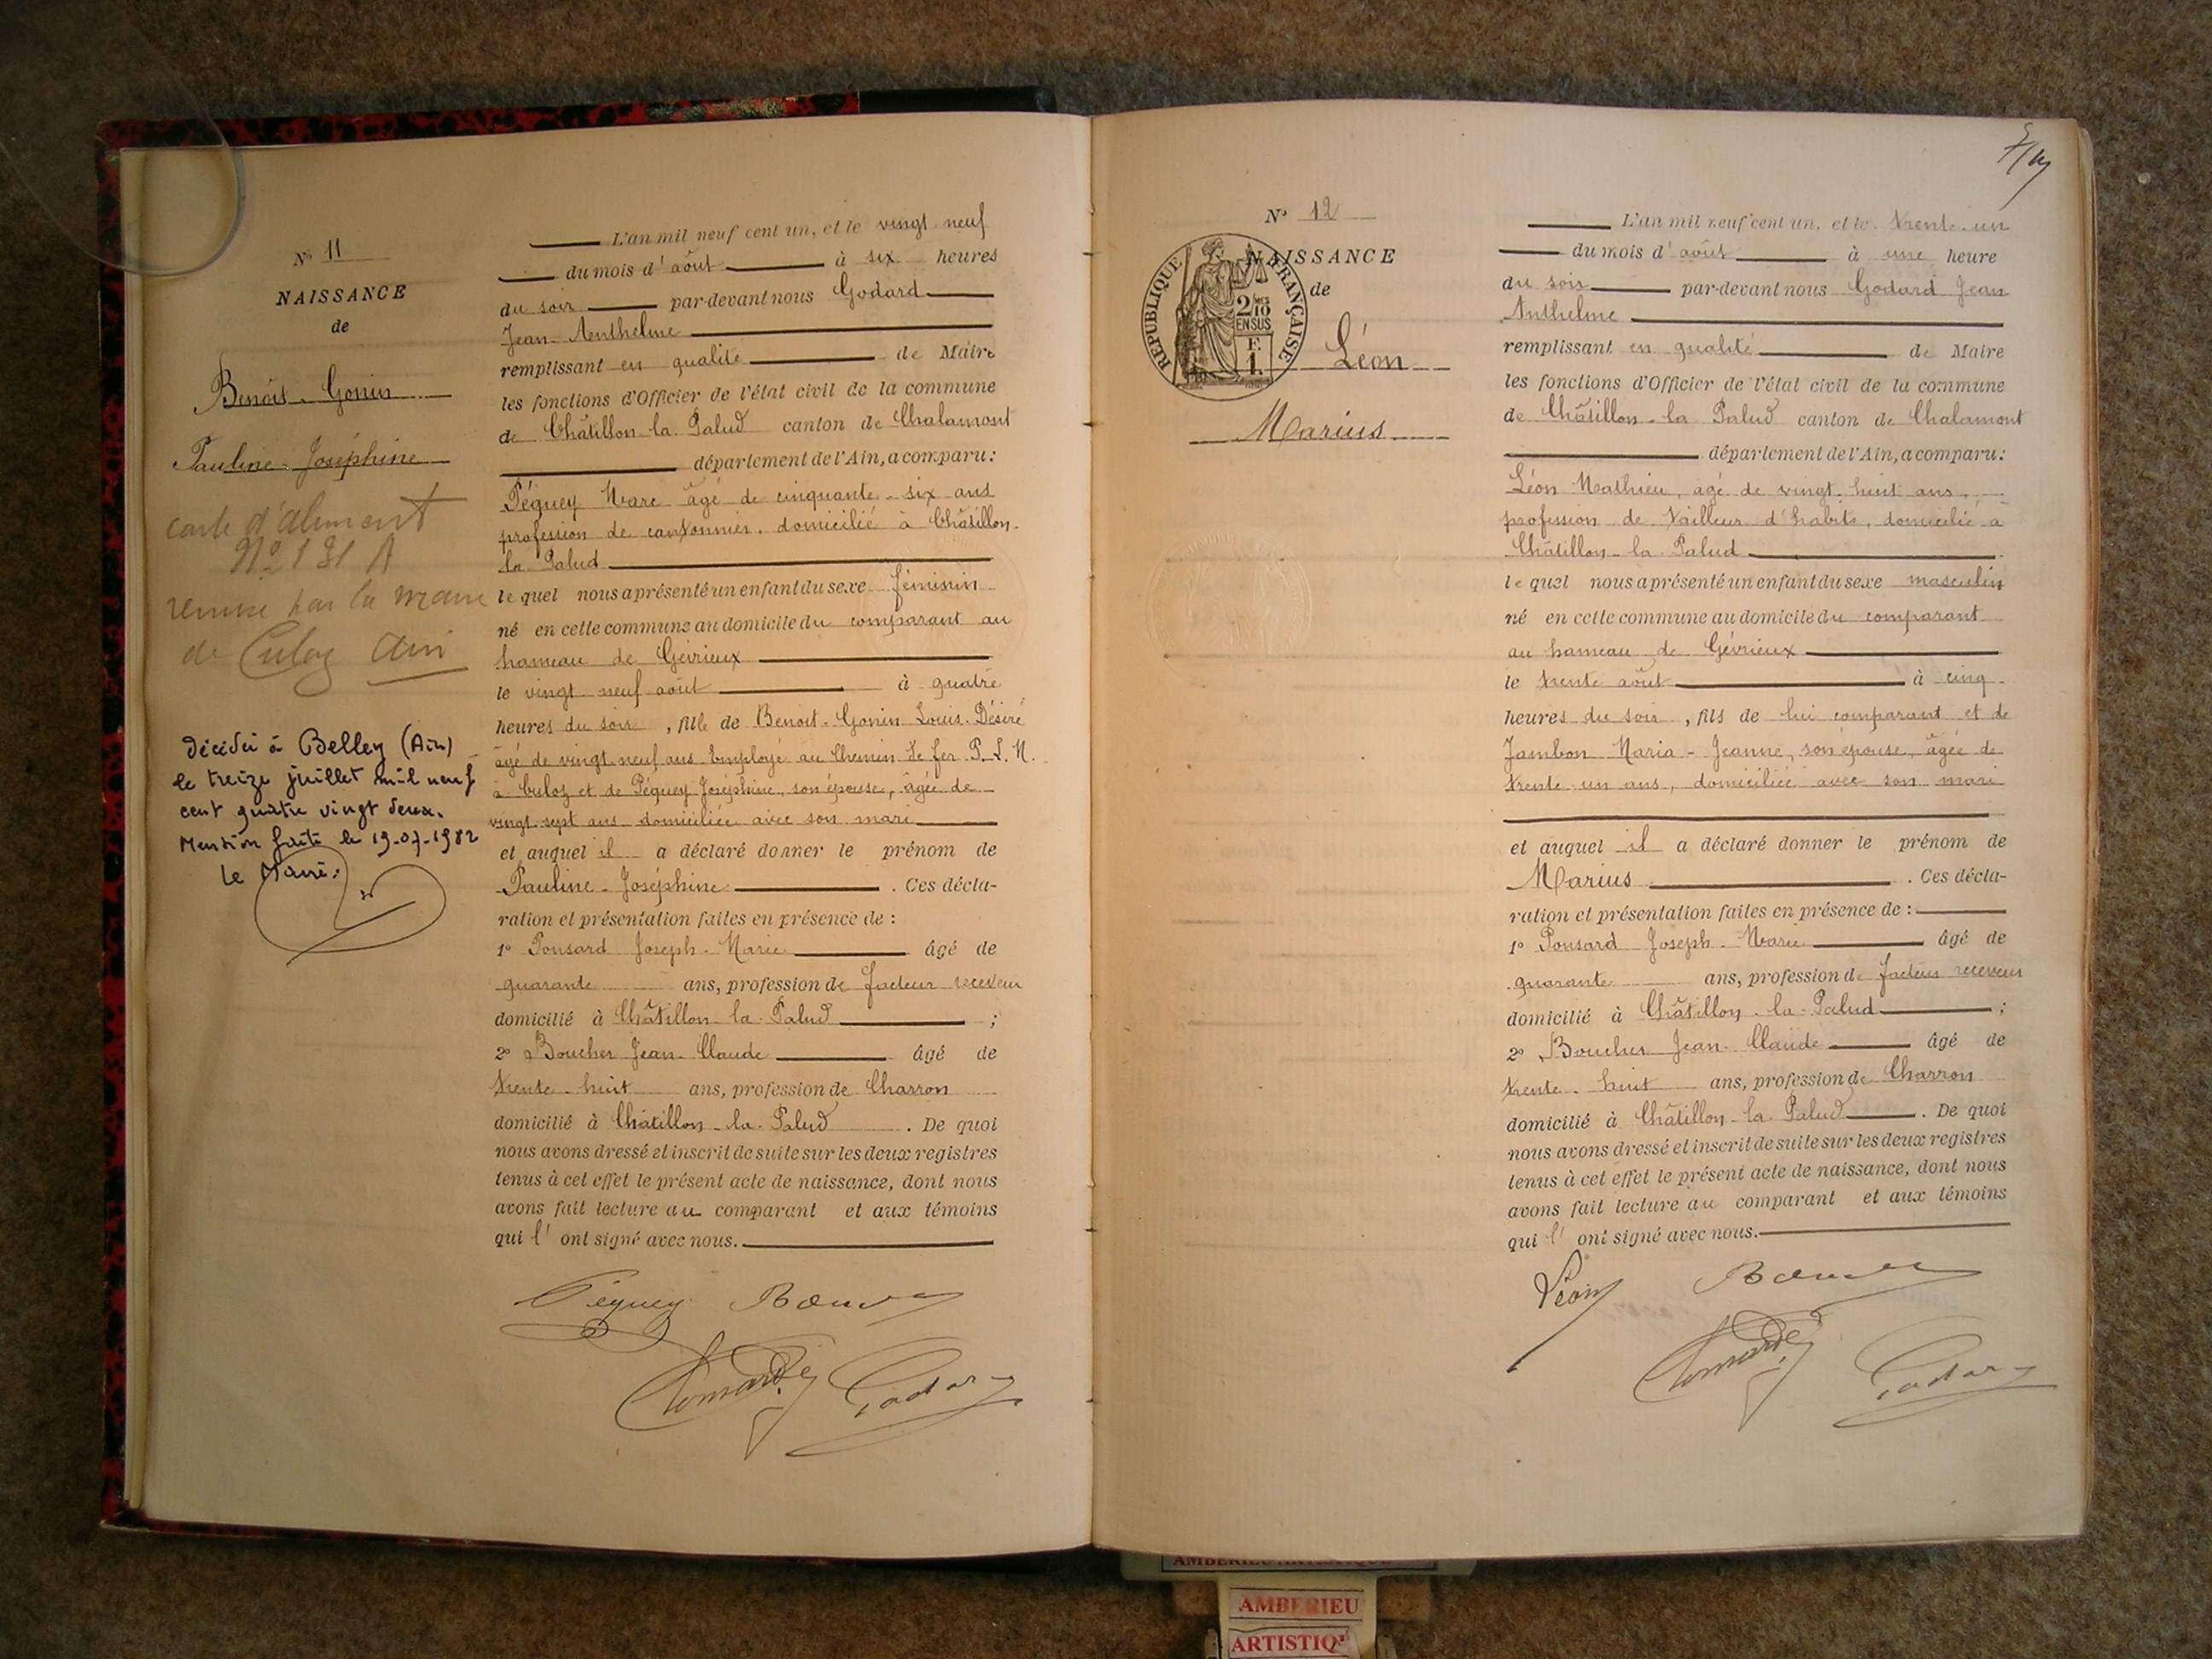 Nº 11
NAISSANCE
de
Benoît-Gonin
Pauline-Joséphine
carte d'aliment
Nº 131 A
remise par la mairie
de Culoz Ain
Décédée à Belley (Ain)
le treize juillet mil neuf
cent quatre vingt deux.
Mention faite le 19-07-1982
Le Maire:
L'an mil neuf cent un, et le vingt neuf
du mois d'août à six heures
du soir par-devant nous Godard
Jean-Anthelme
remplissant en qualité de Maire
les fonctions d'Officier de l'état civil de la commune
de Châtillon-la-Palud canton de Chalamont
département de l'Ain, a comparu:
Péguey Marc âgé de cinquante-six ans
profession de cantonnier, domicilié à Châtillon-
la Palud
lequel nous a présenté un enfant du sexe féminin
né en cette commune au domicile du comparant au
hameau de Gévrieux
le vingt neuf août à quatre
heures du soir, fille de Benoit-Gonin Louis-Désiré
âgé de vingt neuf ans Employé au Chemin de fer P.L.M.
à Culoz et de Péguey Joséphine, son épouse, âgée de
vingt sept ans domiciliée avec son mari
et auquel il a déclaré donner le prénom de
Pauline-Joséphine. Ces décla-
ration et présentation faites en présence de :
1º Ponsard Joseph-Marie âgé de
quarante ans, profession de facteur receveur
domicilié à Châtillon-la-Palud ;
2º Boucher Jean-Claude âgé de
trente-huit ans, profession de Charron
domicilié à Châtillon-la-Palud. De quoi
nous avons dressé et inscrit de suite sur les deux registres
tenus à cet effet le présent acte de naissance, dont nous
avons fait lecture au comparant et aux témoins
qui l'ont signé avec nous.
Péguey Boucher
Ponsard Godard
Nº 12
NAISSANCE
de
RÉPUBLIQUE FRANÇAISE
2/10
EN SUS
F.
1.
Léon
Marius
L'an mil neuf cent un, et le trente-un
du mois d'août à une heure
du soir par-devant nous Godard Jean
Anthelme
remplissant en qualité de Maire
les fonctions d'Officier de l'état civil de la commune
de Châtillon-la-Palud canton de Chalamont
département de l'Ain, a comparu:
Léon Mathieu, âgé de vingt-huit ans
profession de tailleur d'habits, domicilié à
Châtillon-la-Palud
lequel nous a présenté un enfant du sexe masculin
né en cette commune au domicile du comparant
au hameau de Gévrieux
le trente août à cinq
heures du soir, fils de lui comparant et de
Jambon Maria-Jeanne, son épouse, âgée de
trente un ans, domiciliée avec son mari
et auquel il a déclaré donner le prénom de
Marius. Ces décla-
ration et présentation faites en présence de :
1º Ponsard Joseph-Marie âgé de
quarante ans, profession de facteur receveur
domicilié à Châtillon-la-Palud ;
2º Boucher Jean-Claude âgé de
trente-huit ans, profession de Charron
domicilié à Châtillon-la-Palud. De quoi
nous avons dressé et inscrit de suite sur les deux registres
tenus à cet effet le présent acte de naissance, dont nous
avons fait lecture au comparant et aux témoins
qui l'ont signé avec nous.
Léon Boucher
Ponsard Godard
AMBERIEU ARTISTIQUE
AMBERIEU
ARTISTIQ